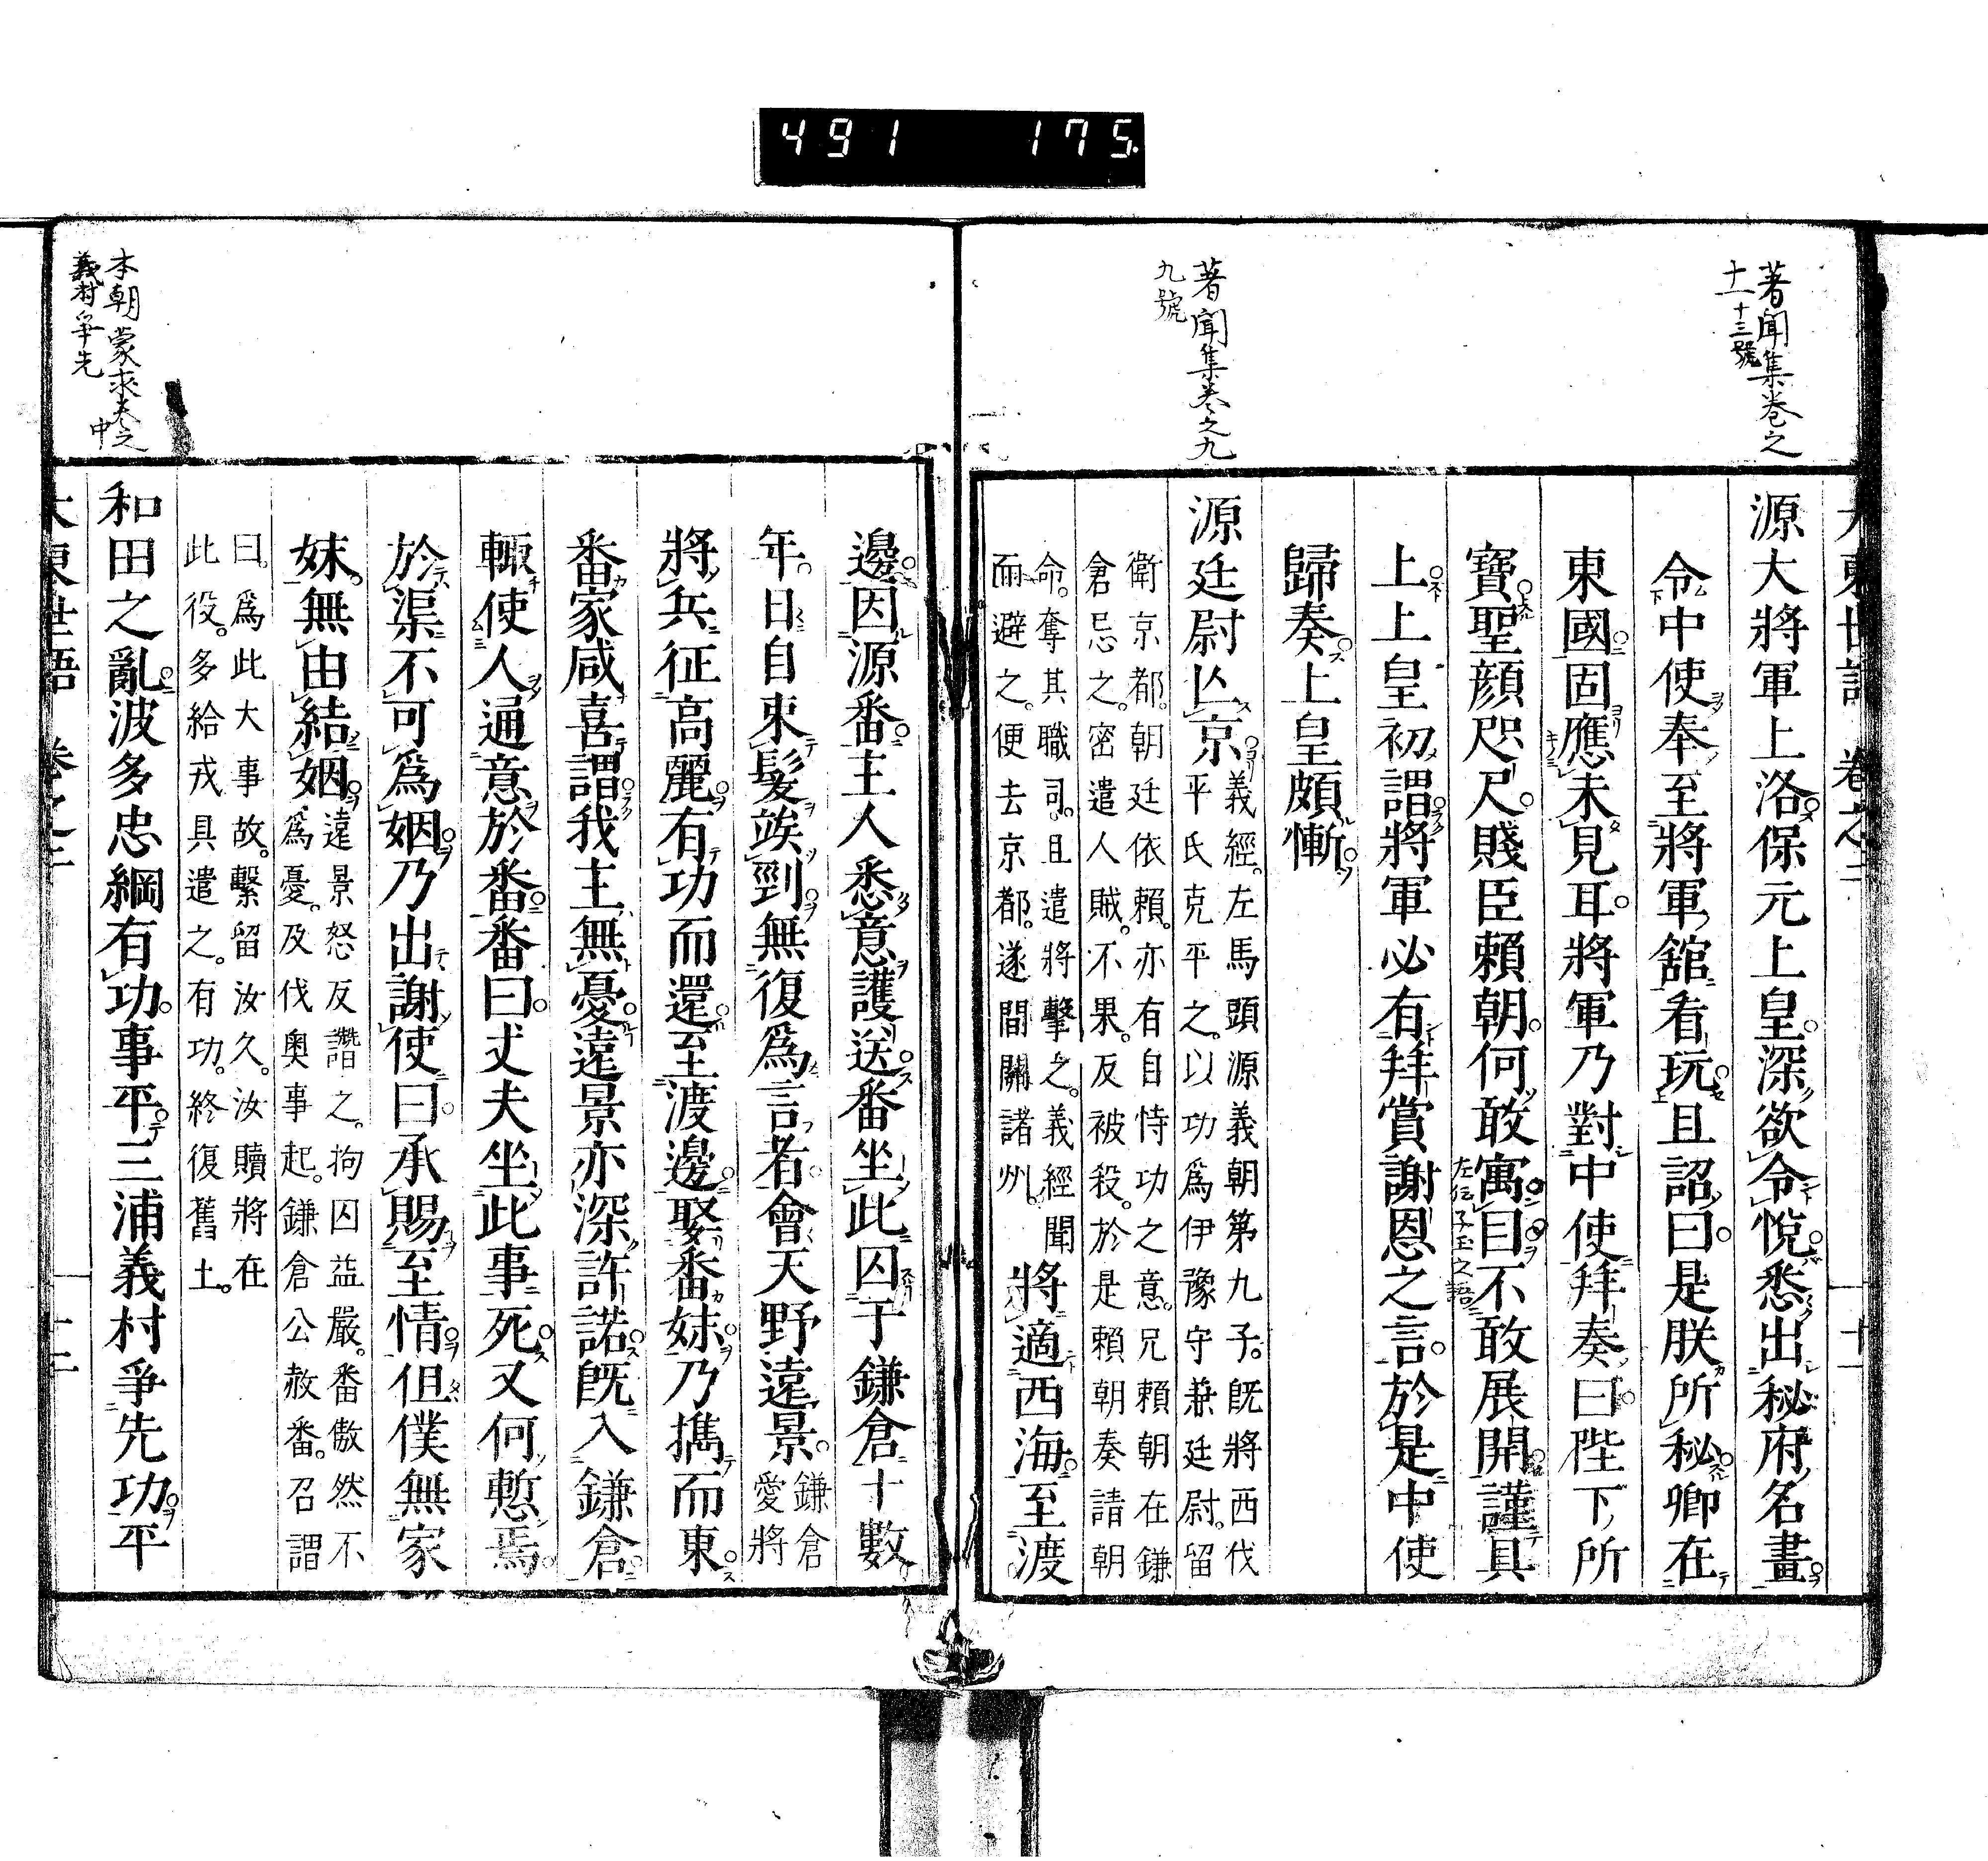 491 175
著聞集卷之
十一 十三號
著聞集卷之九
九號
大東世語 卷之二 十一
源大將軍上洛保元上皇深欲令悅悉出秘府名畫
令中使奉至將軍舘看玩且詔曰是朕所秘卿在
東國固應未見耳將軍乃對中使拜奏曰陛下所
寶聖顔咫尺賤臣賴朝何敢寓目不敢展開謹具
左伝子玉之語
上上皇初謂將軍必有拜賞謝恩之言於是中使
歸奏上皇頗慚
源廷尉亾京
義經左馬頭源義朝第九子既將西伐
平氏克平之以功爲伊豫守兼廷尉留
衛京都朝廷依賴亦有自恃功之意兄賴朝在鎌
倉忌之密遣人賊不果反被殺於是賴朝奏請朝
命奪其職司且遣將擊之義經聞
而避之便去京都遂間關諸州
將適西海至渡
邊因源番主人悉意護送番坐此囚于鎌倉十數
年日自束髮竢剄無復爲言者會天野遠景
鎌倉
愛將
將兵征高麗有功而還至渡邊娶番妹乃攜而東
番家咸喜謂我主無憂遠景亦深許諾既入鎌倉
輙使人通意於番番曰丈夫坐此事死又何慙焉
於渠不可爲姻乃出謝使曰承賜至情但僕無家
妹無由結姻
遠景怒反譖之拘囚益嚴番傲然不
爲憂及伐奥事起鎌倉公赦番召謂
曰爲此大事故繫留汝久汝贖將在
此役多給戎具遣之有功終復舊土
和田之亂波多忠綱有功事平三浦義村爭先功平
大東世語 卷之二 十二
本朝蒙求卷之中
義村爭先